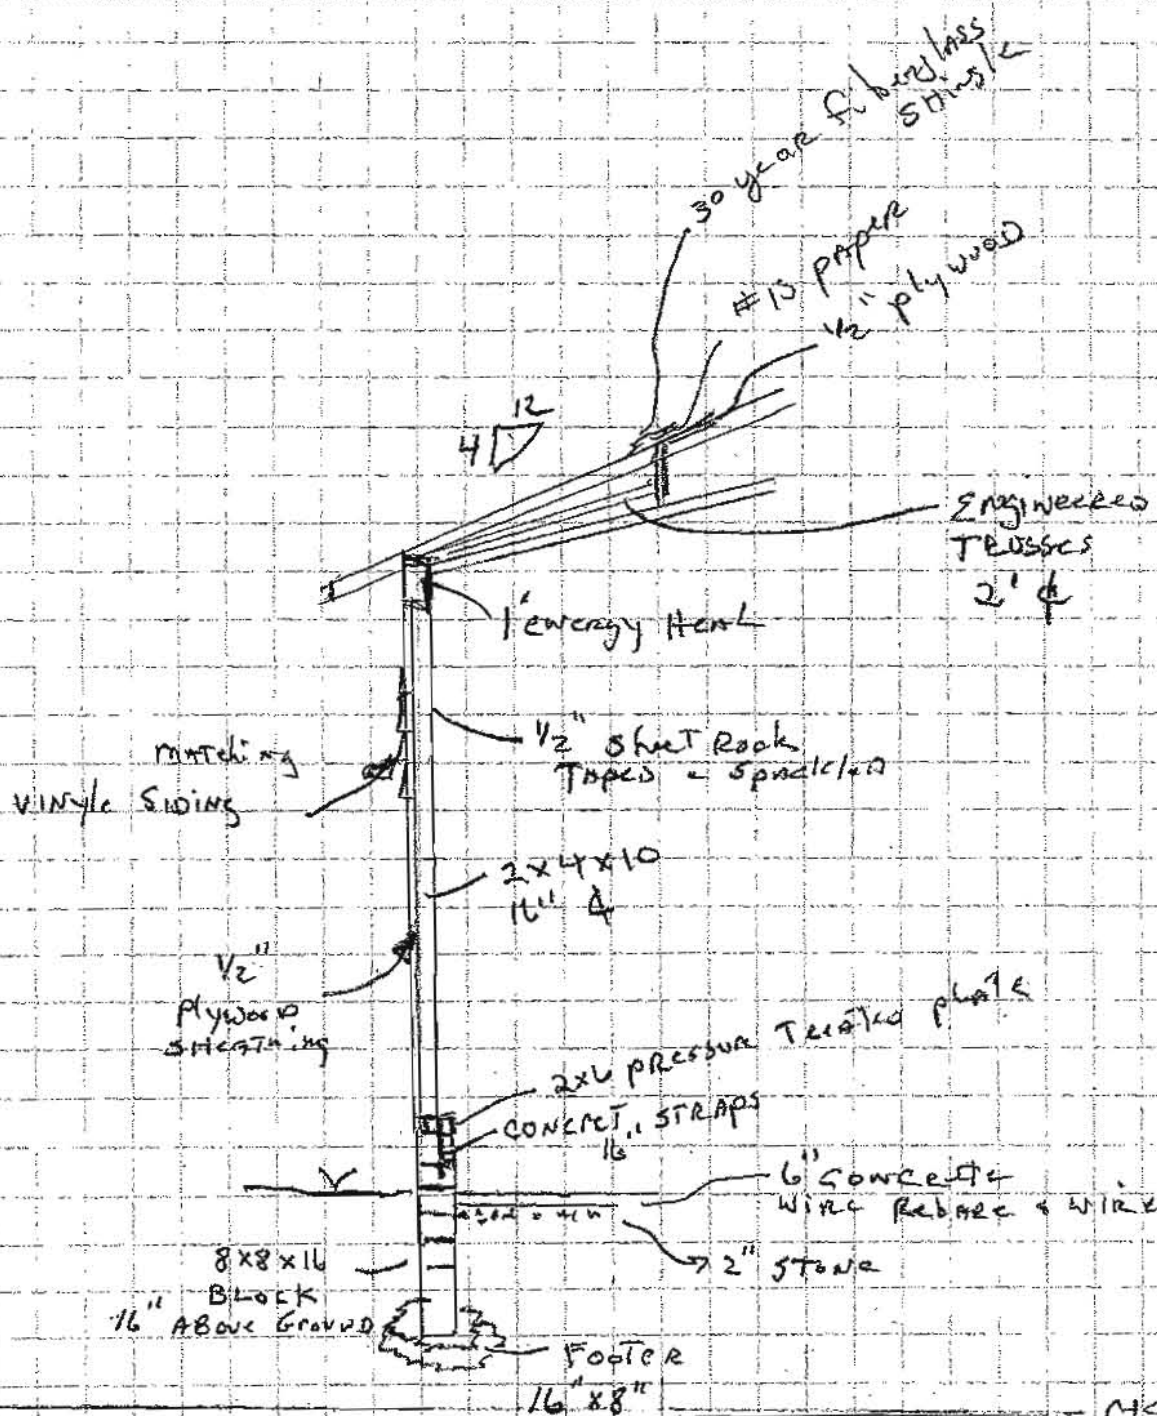 30 year fiberglass
SHingle
#15 paper
1/2" plywood
12
4
Engineered
Trusses
2' ¢
1' energy Heal
1/2" SheetRock
Taped & Spackled
matching
Vinyle Siding
2x4x10
16" ¢
1/2"
Plywood
Sheathing
2x6 pressure Treated plate
Concret STRAPS
16"
6" Concrete
wire Rebare & wire
2" Stone
8x8x16
Block
16" Above Ground
Footer
16" x 8"